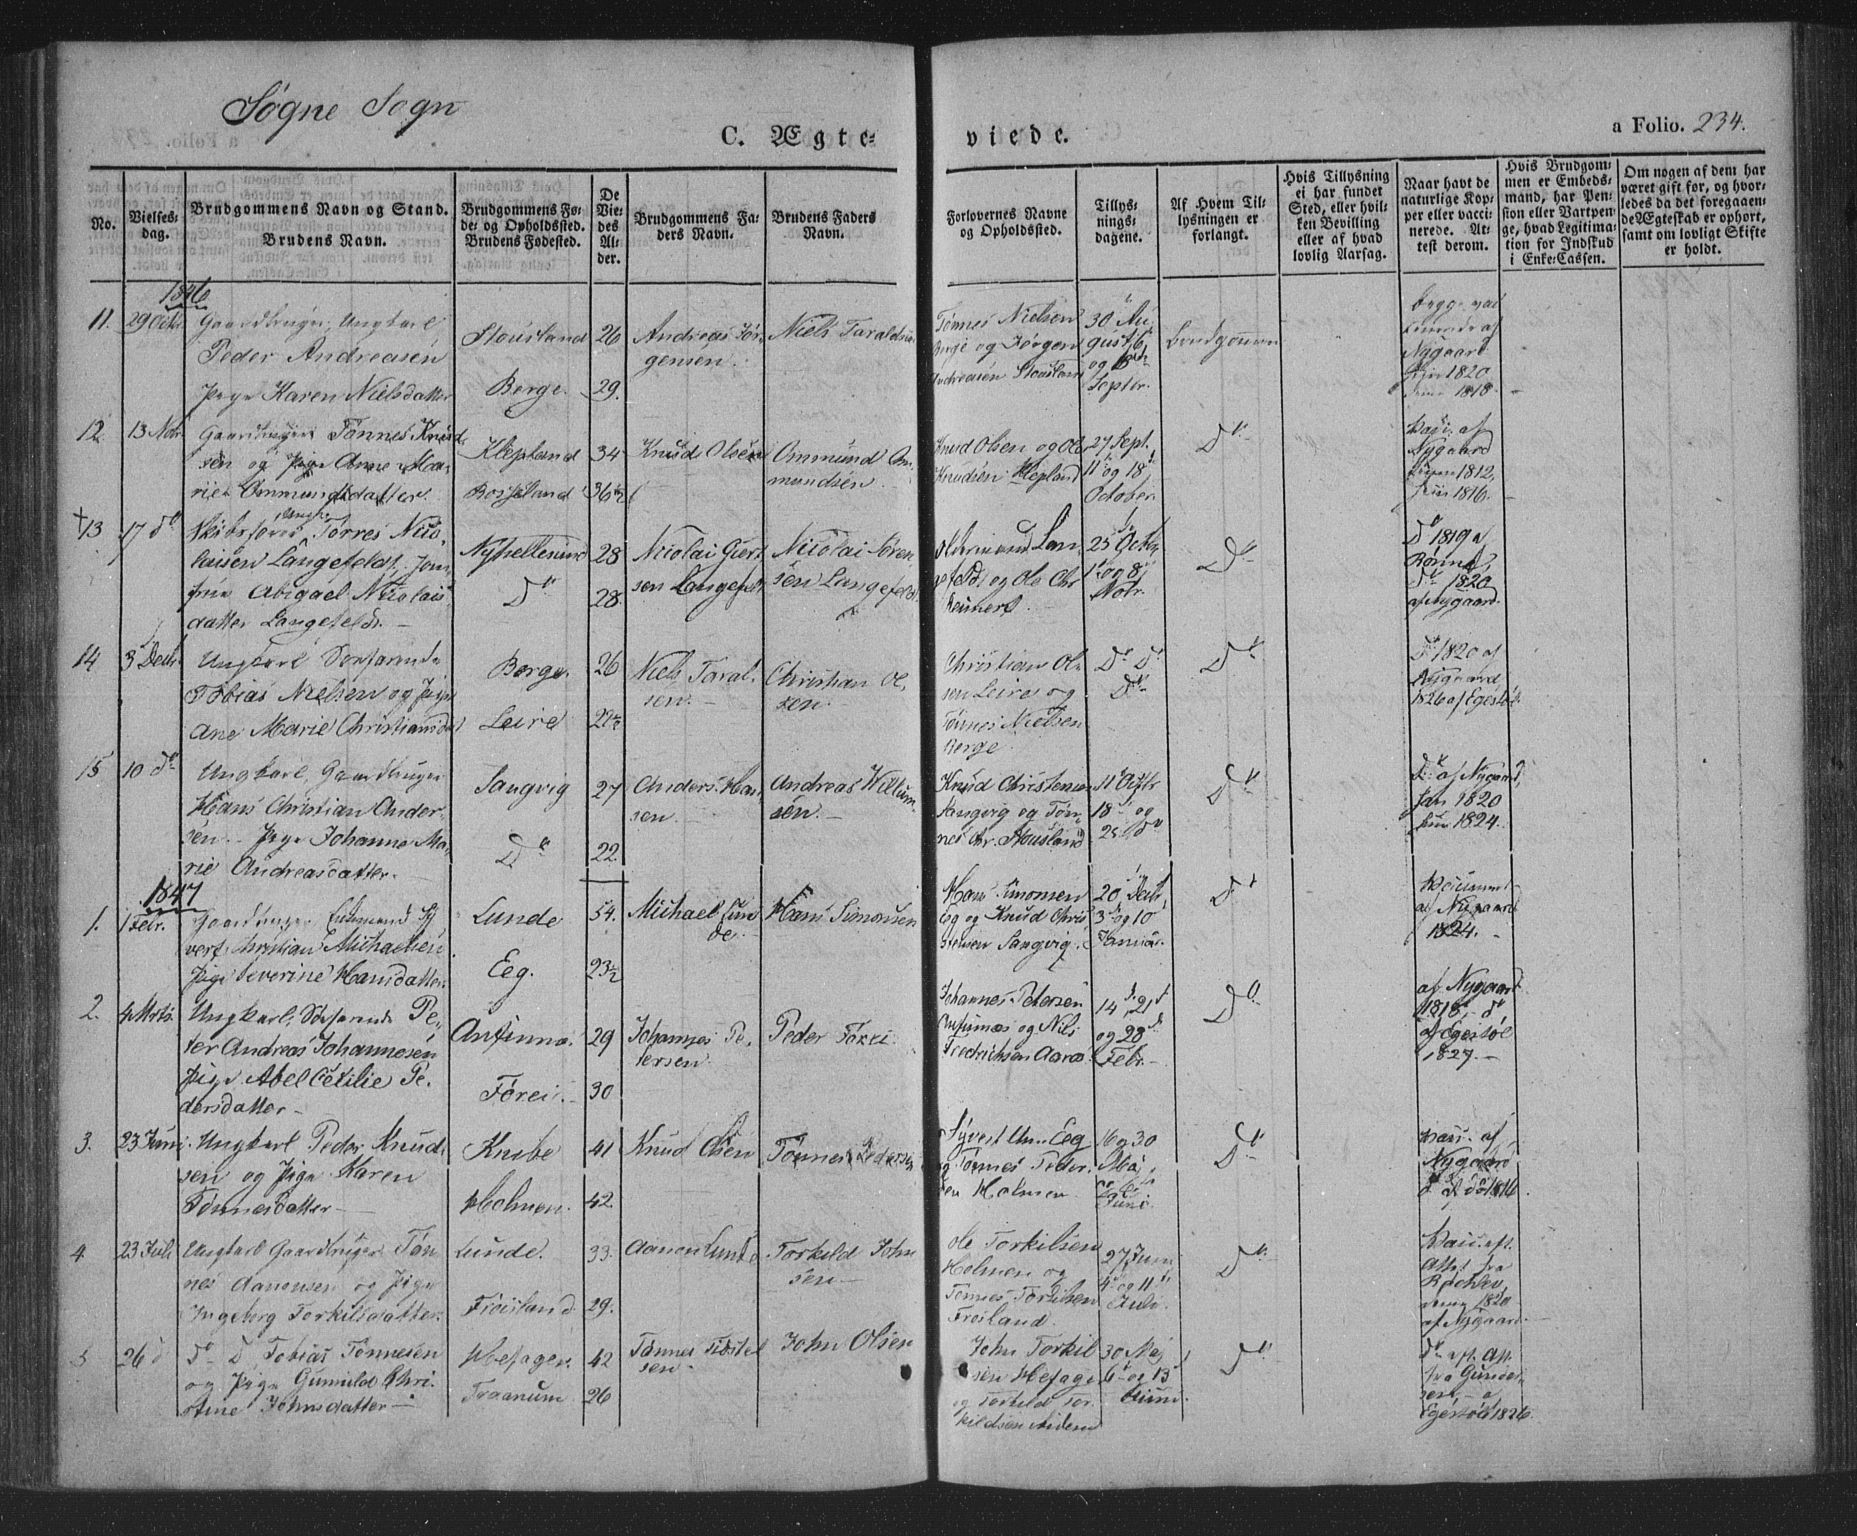 Søgne Sogn
C. Ægte=
viede.
a Folio. 234.
No.
Vielses=
dag.
Brudgommens Navn og Stand.
Brudens Navn.
Brudgommens Fø=
de= og Opholdssted.
Brudens Fødested.
De
Vie=
des
Al=
der.
Brudgommens Fa=
ders Navn.
Brudens Faders
Navn.
Forlovernes Navne
og Opholdssted.
Tillys=
nings=
dagene.
Af Hvem Til=
lysningen er
forlangt.
Hvis Tillysning
ei har fundet
Sted, eller hvil=
ken Bevilling
eller af hvad
lovlig Aarsag.
Naar havt de
naturlige Kop=
per eller vacci=
nerede. At=
test derom.
Hvis Brudgom=
men er Embeds=
mand, har Pen=
sion eller Vartpen=
ge, hvad Legitima=
tion for Indskud
i Enke=Cassen.
Om nogen af dem har
været gift før, og hvor=
ledes da det foregaaen=
de Ægteskab er ophørt,
samt om lovligt Skifte
er holdt.
1846
11.
29 Octbr.
Gaardbruger, Ungkarl
Peder Andreasen
Pige Karen Nielsdatter
Stousland
Berge.
26
29.
Andreas Jør
gensen.
Niels Taraldsen
Tønnes Nielsen
Berge og Jørgen
Andreasen Stousland
30 Au
gust, 6
og
Septbr.
Brudgommen
begge
af
Nygaard
1820
1818.
12.
13 Nobr.
Gaardbruger Tønnes Knud
sen og Pige Anne Ma
rie Ommundsdatter.
Klepland
Rosseland
34
36½
Knud Olsen
Ommund Om
mundsen.
Knud Olsen og Ole
Knudsen Klepland
27 Sept.
11 og 18
October
Do
Vacc. af
Nygaard
1812,
1816.
†13
17 do
Ungk.
Tørres Nico
laisen Langefeldt, Jom
frue Abigael Nicolais
datter Langefeldt.
Nyhellesund
Do
28
28.
Nicolai Giert
sen Langefeldt
Nicolai Søren
sen Langefeldt
Lan
gefeldt og Ole Chr.
Reimert.
25 Octbr
1 og 8
Nobr.
Do
Do 1819 a
Rønne,
Do 1820
af Nygaard.
14
3 Decbr.
Ungkarl Søefarende
Tobias Nielsen og Pige
Ane Marie Christiansdat
Berge.
Leire
26
21½
Niels Taral
sen.
Christian Ol
sen.
Christian Ol
sen Leire og
Tønnes Nielsen
Berge.
Do Do
Do
Do
Do 1820 af
Nygaard
1826 af Egestøl.
15
10 do
Ungkarl, Gaardbruger
Hans Christian Ander
sen. Pige Johanne Ma
rie Andreasdatter.
Sangvig
Do
27
22.
Anders Han
sen.
Andreas Willum
sen.
Knud Christensen
Sangvig og Tøn
nes Chr. Stousland
11 Octbr
18 og
25 do
Do
Do af Nygaard,
han 1820
hun 1824.
1847
1.
1 Febr.
Gaardbruger Enkemand Sy
vert Christian Michaelsen
Pige Severine Hansdatter
Lunde
Eeg.
54.
23½
Michael Lun
de.
Hans Simonsen
Hans Simonsen
Eeg og Knud Chris
tensen Sangvig.
20 Decbr,
3 og 10
Januar.
Do
af Nygaard
1824.
2.
4 Marts
Ungkarl, Søefarende Pe
ter Andreas Johannesen
Pige Abel Cecilie Pe
dersdatter
Føreei.
29
30
Johannes Pe
tersen.
Peder
Johannes Petersen
og Nils
Fredrichsen Aarøs
14, 21
og 28
Febr.
Do
af Nygaard
1818, do
af Egestøl
1827.
3.
23 Juni
Ungkarl Peder Knud
sen og Pige Karen
Tønnesdatter
Knibe
Holmen.
41
42.
Knud Olsen
Tønnes Pedersen
Syvert Eeg
og Tønnes Peder
sen Holmen.
16 og 30
Maj
Juni
Do
Vacc. af
Nygaard
1816.
4
23 Juli
Ungkarl Gaardbruger Tøn
nes Aanensen og Pige
Ingeborg Torkilsdatter
Lunde.
Frøisland
33.
29.
Aanon Lunde
Torkild John
sen
Ole Torkilsen
Holmen og
Tønnes Torkilsen
Frøisland.
27 Juni
4 og 11
Juli.
Do
Vacc. eft.
Attest fra
1820
af Nygaard.
5
26 d
Do Do Tobias Tønnesen
og Pige Gunuld Chri
stine Johnsdatter
Hefager.
Traanum
42
26
Tønnes
sen
John Olsen
John Torkil
sen Hefager
og Torkild Tor
kildsen
30 Maj
6 og 13
Juni
Do
Do eft. Att
fra Gunder
sen, a
Egestøl 1826.